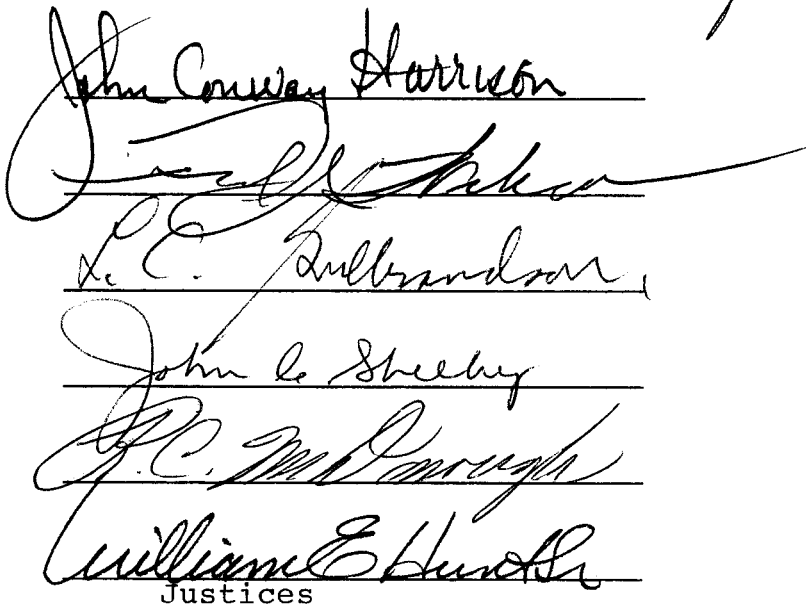 John Conway Harrison
L. C. Gulbrandson
John C. Sheehy
R.C. McDonough
William E Hunt Sr
Justices